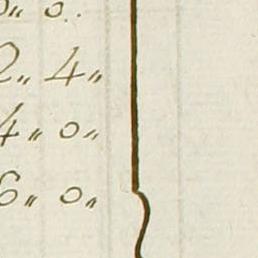 0〃 0.
2〃 4〃
4〃 0〃
6〃 0〃